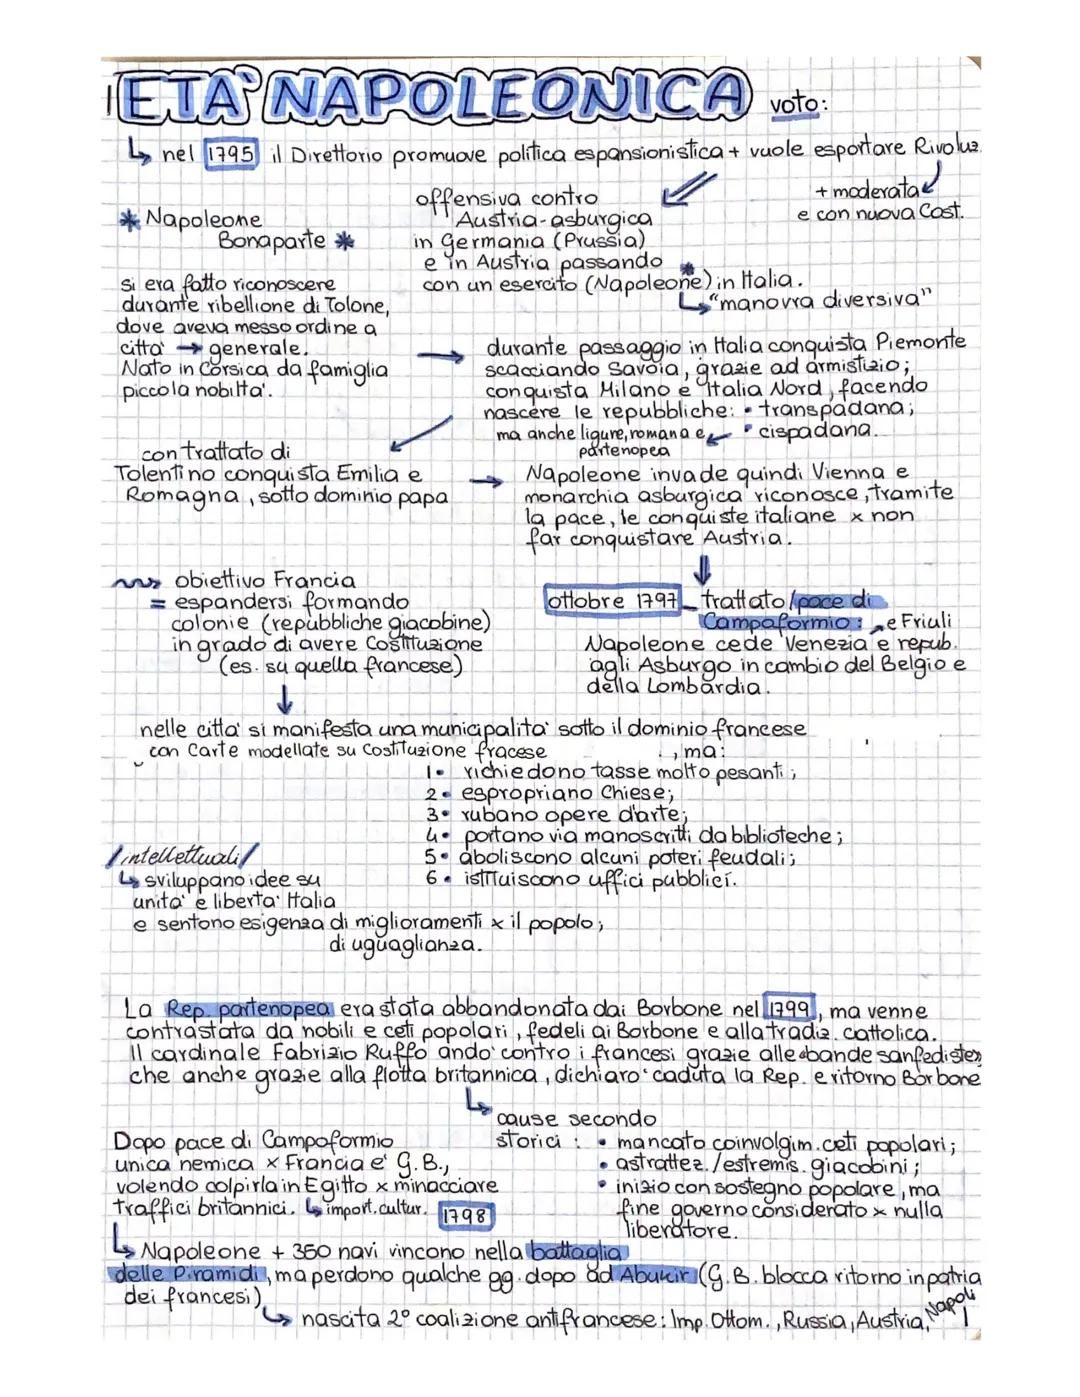 ETA' NAPOLEONICA voto:
↳ nel 1795 il Direttorio promuove politica espansionistica + vuole esportare Rivoluz.
+ moderata
e con nuova Cost.
offensiva contro
Austria-asburgica
in Germania (Prussia)
e in Austria passando
con un esercito (Napoleone)* in Italia.
↳ "manovra diversiva"
* Napoleone
Bonaparte *
si era fatto riconoscere
durante ribellione di Tolone,
dove aveva messo ordine a
citta' → generale.
Nato in Corsica da famiglia
piccola nobilta'.
→ durante passaggio in Italia conquista Piemonte
scacciando Savoia, grazie ad armistizio;
conquista Milano e Italia Nord, facendo
nascere le repubbliche: • transpadana;
ma anche ligure, romana e • cispadana.
partenopea
con trattato di
Tolentino conquista Emilia e
Romagna, sotto dominio papa
→ Napoleone invade quindi Vienna e
monarchia asburgica riconosce, tramite
la pace, le conquiste italiane x non
far conquistare Austria.
obiettivo Francia
= espandersi formando
colonie (repubbliche giacobine)
in grado di avere Costituzione
(es. su quella francese)
ottobre 1797 trattato/pace di
Campoformio: e Friuli
Napoleone cede Venezia e repub.
agli Asburgo in cambio del Belgio e
della Lombardia.
nelle citta' si manifesta una municipalita' sotto il dominio francese
con Carte modellate su Costituzione fracese , ma:
1• richiedono tasse molto pesanti;
2• espropriano Chiese;
3• rubano opere d'arte;
4• portano via manoscritti da biblioteche;
5• aboliscono alcuni poteri feudali;
6• istituiscono uffici pubblici.
/intellettuali/
↳ sviluppano idee su
unita' e liberta' Italia
e sentono esigenza di miglioramenti x il popolo;
di uguaglianza.
La Rep. partenopea era stata abbandonata dai Borbone nel 1799, ma venne
contrastata da nobili e ceti popolari, fedeli ai Borbone e alla tradiz. cattolica.
Il cardinale Fabrizio Ruffo ando' contro i francesi grazie alle bande sanfediste,
che anche grazie alla flotta britannica, dichiaro' caduta la Rep. e ritorno Borbone
↳ cause secondo
storici: • mancato coinvolgim. ceti popolari;
• astrattez./estremis. giacobini;
• inizio con sostegno popolare, ma
fine governo considerato x nulla
liberatore.
Dopo pace di Campoformio
unica nemica x Francia e' G.B.,
volendo colpirla in Egitto x minacciare
traffici britannici. ↳ import. cultur. 1798
↳ Napoleone + 350 navi vincono nella battaglia
delle Piramidi, ma perdono qualche gg. dopo ad Abukir (G.B. blocca ritorno in patria
dei francesi)
↳ nascita 2° coalizione antifrancese: Imp. Ottom., Russia, Austria, Napoli